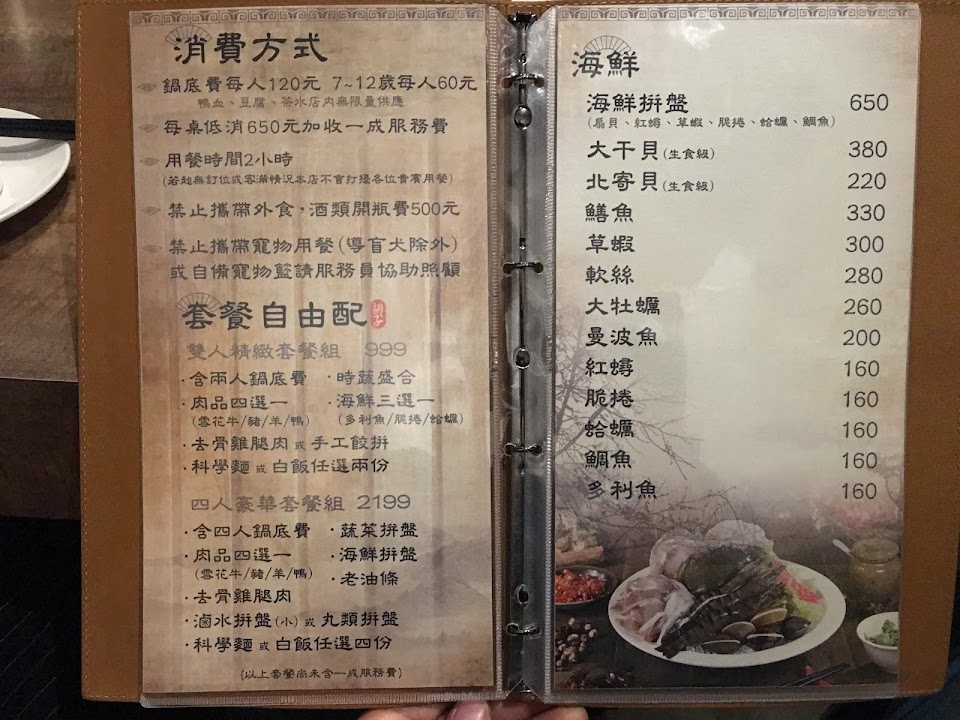 消費方式
鍋底費每人120元 7~12歲每人60元
鴨血、豆腐、茶水店內無限量供應
每桌低消650元加收一成服務費
用餐時間2小時
(若超無訂位或客滿情況本店不會打擾各位貴賓用餐)
禁止攜帶外食，酒類開瓶費500元
禁止攜帶寵物用餐(導盲犬除外)
或自備寵物籃請服務員協助照顧
套餐自由配
雙人精緻套餐組 999
·含兩人鍋底費 ·時蔬盛合
·肉品四選一 ·海鮮三選一
(雪花牛/豬/羊/鴨) (多利魚/脆捲/蛤蠣)
·去骨雞腿肉 或 手工餃拼
·科學麵 或 白飯任選兩份
四人豪華套餐組 2199
·含四人鍋底費 ·蔬菜拼盤
·肉品四選一 ·海鮮拼盤
(雪花牛/豬/羊/鴨) ·老油條
·去骨雞腿肉
·滷水拼盤(小) 或 丸類拼盤
·科學麵 或 白飯任選四份
(以上套餐尚未含一成服務費)
海鮮
海鮮拼盤 650
(扇貝、紅蟳、草蝦、脆捲、蛤蠣、鯛魚)
大干貝(生食級) 380
北寄貝(生食級) 220
鱔魚 330
草蝦 300
軟絲 280
大牡蠣 260
曼波魚 200
紅蟳 160
脆捲 160
蛤蠣 160
鯛魚 160
多利魚 160